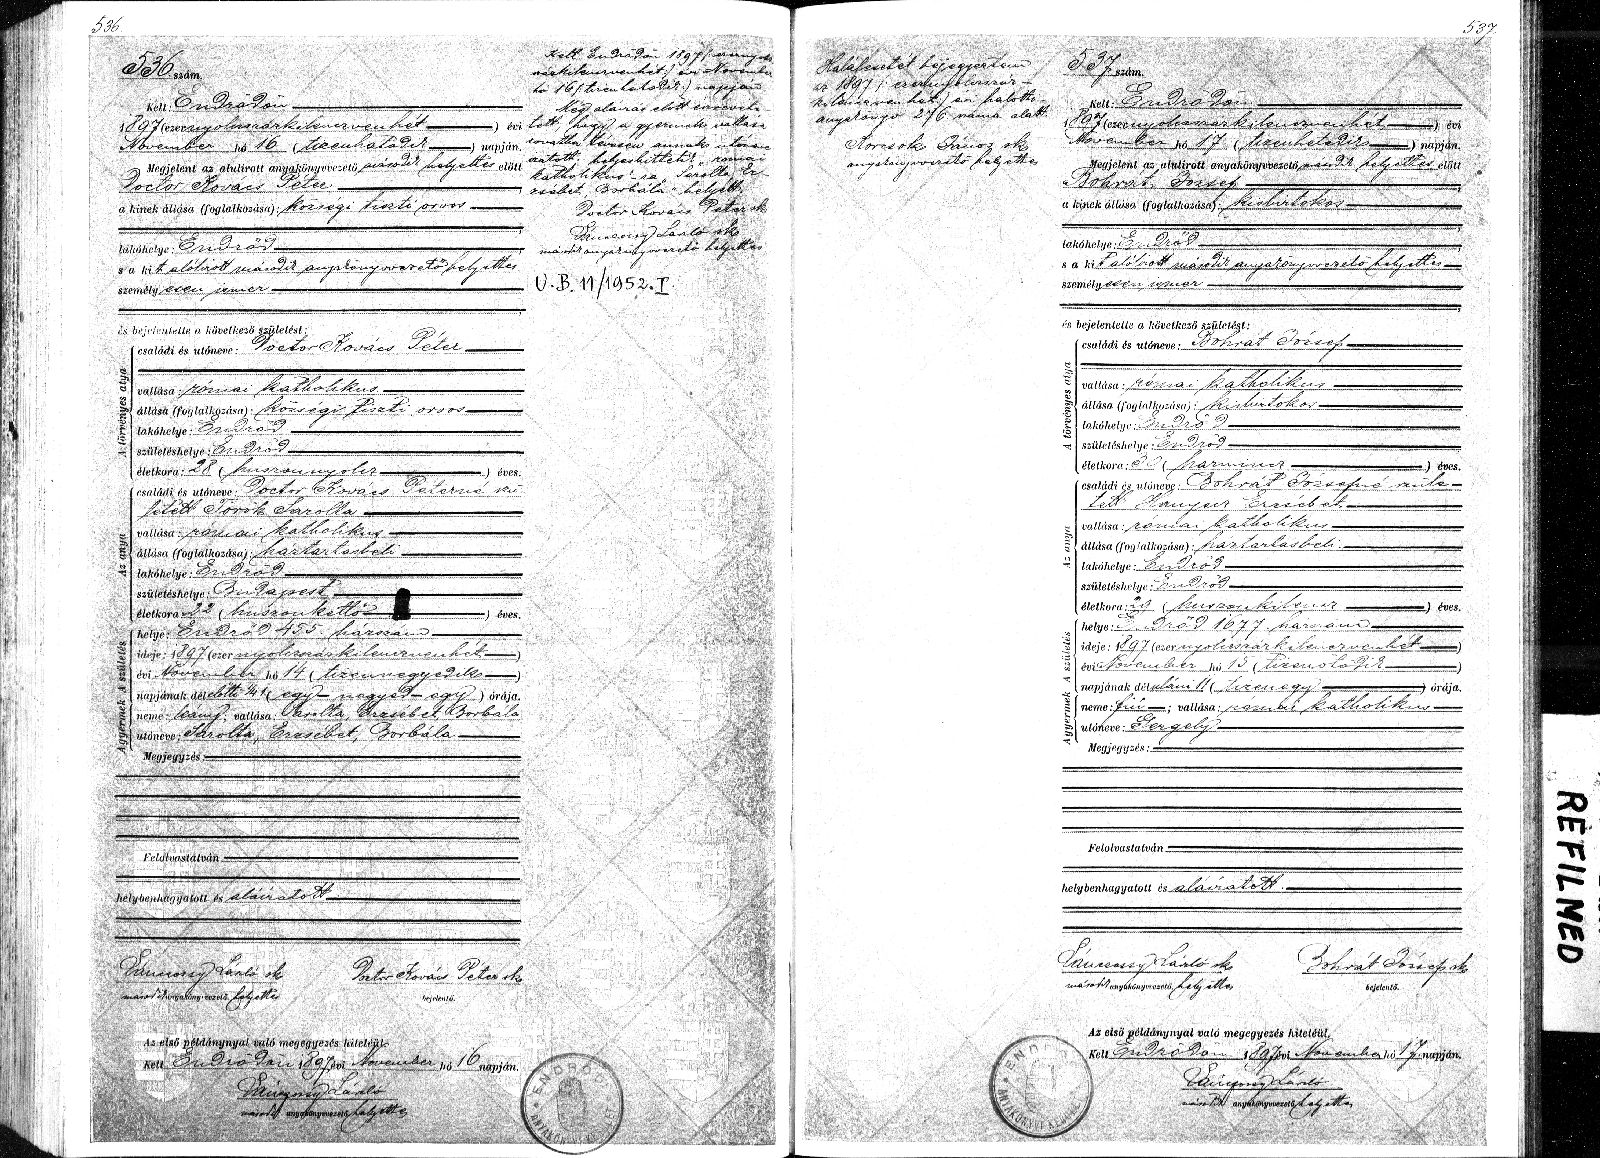 536.
536 szám.
Kelt: Endrődön
1897 (ezernyolczszázkilenczvenhét) évi
November hó 16 (tizenhatodik) napján.
Megjelent az alulírott anyakönyvvezető második helyettes előtt
Doctor Kovács Péter
a kinek állása (foglalkozása): községi tiszti orvos
lakóhelye: Endrőd
s a kit alólirott második anyakönyvvezető helyettes
személyesen ismer
és bejelentette a következő születést:
A törvényes atya
családi és utóneve: Doctor Kovács Péter
vallása: római katholikus
állása (foglalkozása): községi tiszti orvos
lakóhelye: Endrőd
születéshelye: Endrőd
életkora: 28 (huszonnyolcz) éves.
Az anya
családi és utóneve: Doctor Kovács Péterné szü-
letett Török Sarolta
vallása: római katholikus
állása (foglalkozása): háztartásbeli
lakóhelye: Endrőd
születéshelye: Budapest
életkora: 22 (huszonkettő) éves.
Agyermek A születés
helye: Endrőd 455 házszám
ideje: 1897 (ezernyolczszázkilenczvenhét)
évi November hó 14 (tizennegyedik)
napjának délelőtti ¼1 (egynegyed-egy) órája.
neme: leány; vallása: Sarolta, Erzsébet, Borbála
utóneve: Sarolta, Erzsébet, Borbála
Megjegyzés:
Felolvastatván
helybenhagyatott és aláiratott
László sk
második anyakönyvvezető helyettes
Doctor Kovács Péter sk
bejelentő.
Az első példánynyal való megegyezés hiteléül.
Kelt Endrődön 1897 évi November hó 16 napján.
László
második anyakönyvvezető helyettes
ENDRŐD
ANYAKÖNYVI KERÜLET
Kelt Endrődön 1897 (ezernyolcz
százkilenczvenhét) évi November
hó 16 (tizenhatodik) napján
Még aláirás előtt észrevéte-
tett, hogy a gyermek vallás
rovatba tévesen annak utóneve
iratott, helyesbittetik „római
katholikus"-ra „Sarolta Er-
zsébet, Borbála" helyett.
Doctor Kovács Péter sk
László sk
második anyakönyvvezető helyettes
U.B. 11/1952.I.
537.
Halálesetét bejegyeztem
az 1897 (ezernyolczszáz-
kilenczvenhét) évi halotti
anyakönyv 276 száma alatt.
János sk
anyakönyvvezető helyettes
537 szám.
Kelt: Endrődön
1897 (ezernyolczszázkilenczvenhét) évi
November hó 17 (tizenhetedik) napján.
Megjelent az alulirott anyakönyvvezető második helyettes előtt
Bohrát József
a kinek állása (foglalkozása): kisbirtokos
lakóhelye: Endrőd
s a kit alólirott második anyakönyvvezető helyettes
személyesen ismer
és bejelentette a következő születést:
A törvényes atya
családi és utóneve: Bohrát József
vallása: római katholikus
állása (foglalkozása): kisbirtokos
lakóhelye: Endrőd
születéshelye: Endrőd
életkora: 30 (harmincz) éves.
Az anya
családi és utóneve: Bohrát Józsefné szüle-
tett Erzsébet
vallása: római katholikus
állása (foglalkozása): háztartásbeli
lakóhelye: Endrőd
születéshelye: Endrőd
életkora: 29 (huszonkilencz) éves.
Agyermek A születés
helye: Endrőd 1677 házszám
ideje: 1897 (ezernyolczszázkilenczvenhét)
évi November hó 15 (tizenötödik)
napjának délutáni 11 (tizenegy) órája.
neme: fiú; vallása: római katholikus
utóneve: Gergely
Megjegyzés:
Felolvastatván
helybenhagyatott és aláiratott.
László sk
második anyakönyvvezető helyettes
Bohrát József sk
bejelentő.
Az első példánynyal való megegyezés hiteléül.
Kelt Endrődön 1897 évi November hó 17 napján.
László
második anyakönyvvezető helyettes
ENDRŐD
ANYAKÖNYVI KERÜLET
REFILMED